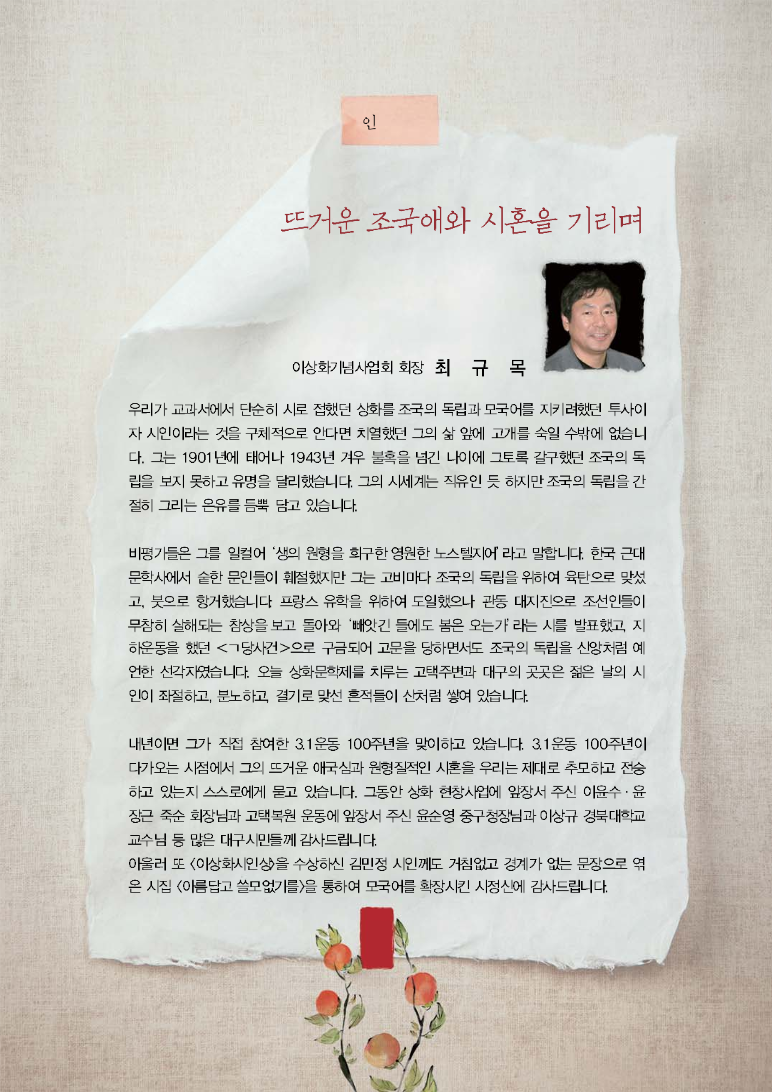 인
뜨거운 조국애와 시혼을 기리며
이상화기념사업회 회장 최 규 목
우리가 교과서에서 단순히 시로 접했던 상화를 조국의 독립과 모국어를 지키려했던 투사이
자 시인이라는 것을 구체적으로 안다면 치열했던 그의 삶 앞에 고개를 숙일 수밖에 없습니
다. 그는 1901년에 태어나 1943년 겨우 불혹을 넘긴 나이에 그토록 갈구했던 조국의 독
립을 보지 못하고 유명을 달리했습니다. 그의 시세계는 직유인 듯 하지만 조국의 독립을 간
절히 그리는 은유를 듬뿍 담고 있습니다.
비평가들은 그를 일컬어 '생의 원형을 희구한 영원한 노스텔지어' 라고 말합니다. 한국 근대
문학사에서 숱한 문인들이 훼절했지만 그는 고비마다 조국의 독립을 위하여 육탄으로 맞섰
고, 붓으로 항거했습니다. 프랑스 유학을 위하여 도일했으나 관동 대지진으로 조선인들이
무참히 살해되는 참상을 보고 돌아와 '빼앗긴 들에도 봄은 오는가' 라는 시를 발표했고, 지
하운동을 했던 <ㄱ당사건>으로 구금되어 고문을 당하면서도 조국의 독립을 신앙처럼 예
언한 선각자였습니다. 오늘 상화문학제를 치루는 고택주변과 대구의 곳곳은 젊은 날의 시
인이 좌절하고, 분노하고, 결기로 맞선 흔적들이 산처럼 쌓여 있습니다.
내년이면 그가 직접 참여한 3.1운동 100주년을 맞이하고 있습니다. 3.1운동 100주년이
다가오는 시점에서 그의 뜨거운 애국심과 원형질적인 시혼을 우리는 제대로 추모하고 전승
하고 있는지 스스로에게 묻고 있습니다. 그동안 상화 현창사업에 앞장서 주신 이윤수·윤
장근 죽순 회장님과 고택복원 운동에 앞장서 주신 윤순영 중구청장님과 이상규 경북대학교
교수님 등 많은 대구시민들께 감사드립니다.
아울러 또 <이상화시인상>을 수상하신 김민정 시인께도 거침없고 경계가 없는 문장으로 엮
은 시집 <아름답고 쓸모없기를>을 통하여 모국어를 확장시킨 시정신에 감사드립니다.